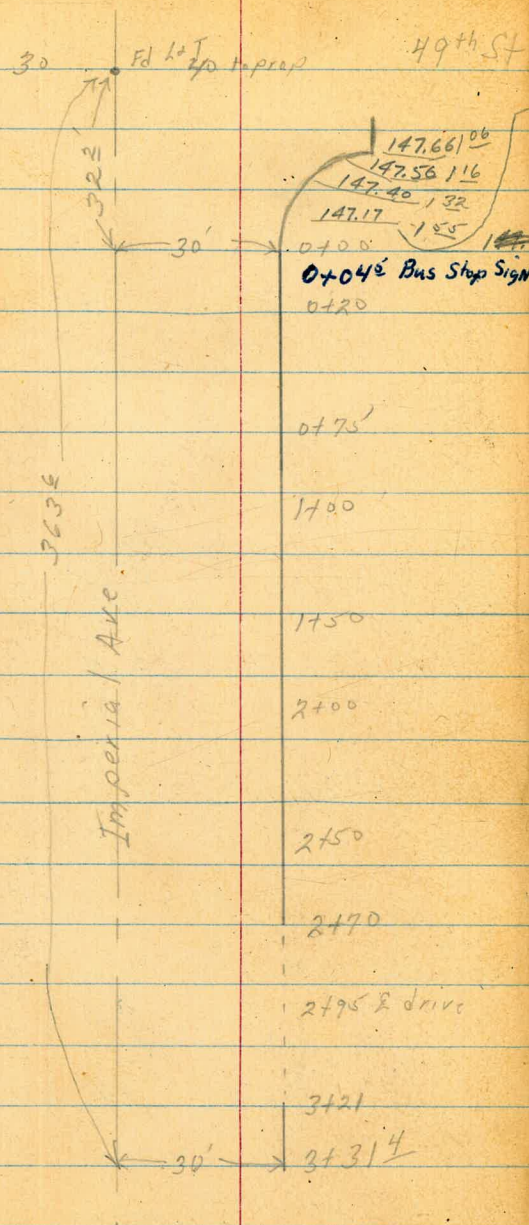 30 Fd L&T 49th St
147.66 1 06
147.56 1 16
147.40 1 32
147.17 1 55
32 2'
30' 0+00
0+04 5 Bus Stop Sign
0+20
0+75
1+00
363 6
1+50
Imperial Ave
2+00
2+50
2+70
2+95 ⅊ drive
3+21
30' 3+31 4